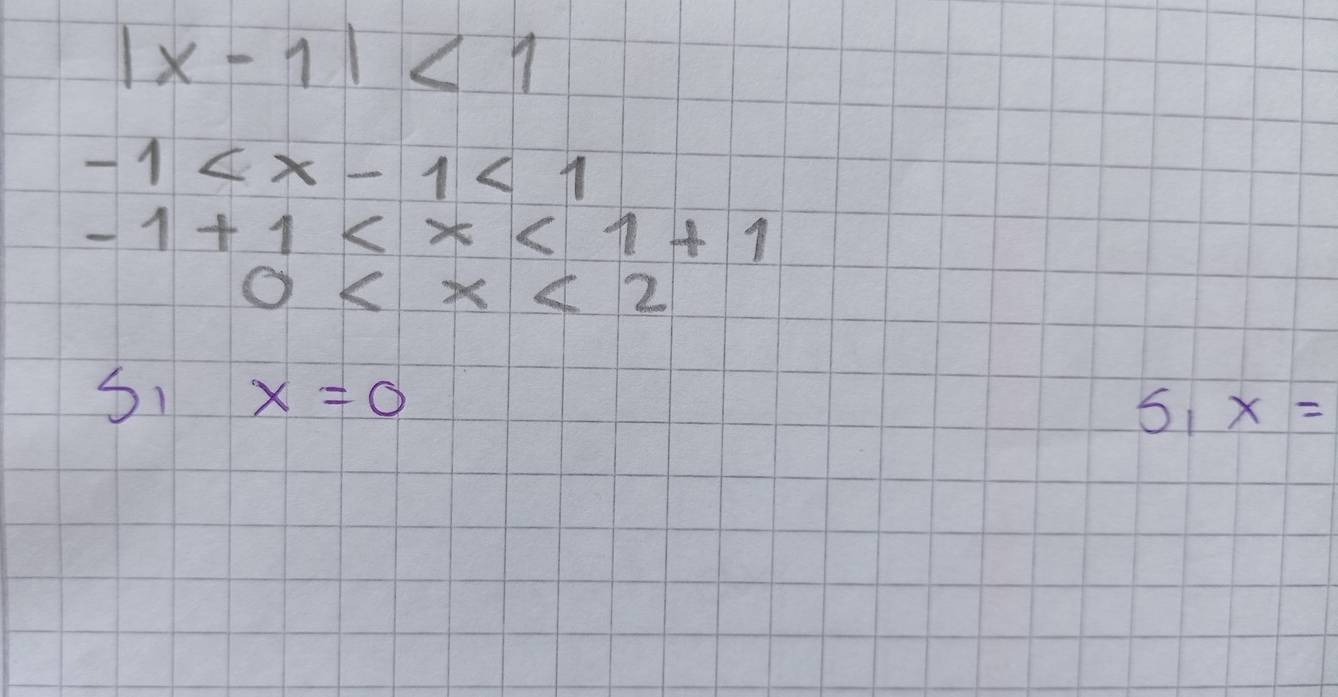 |x - 1| < 1
-1 < x - 1 < 1
-1 + 1 < x < 1 + 1
0 < x < 2
Si x = 0
Si x =